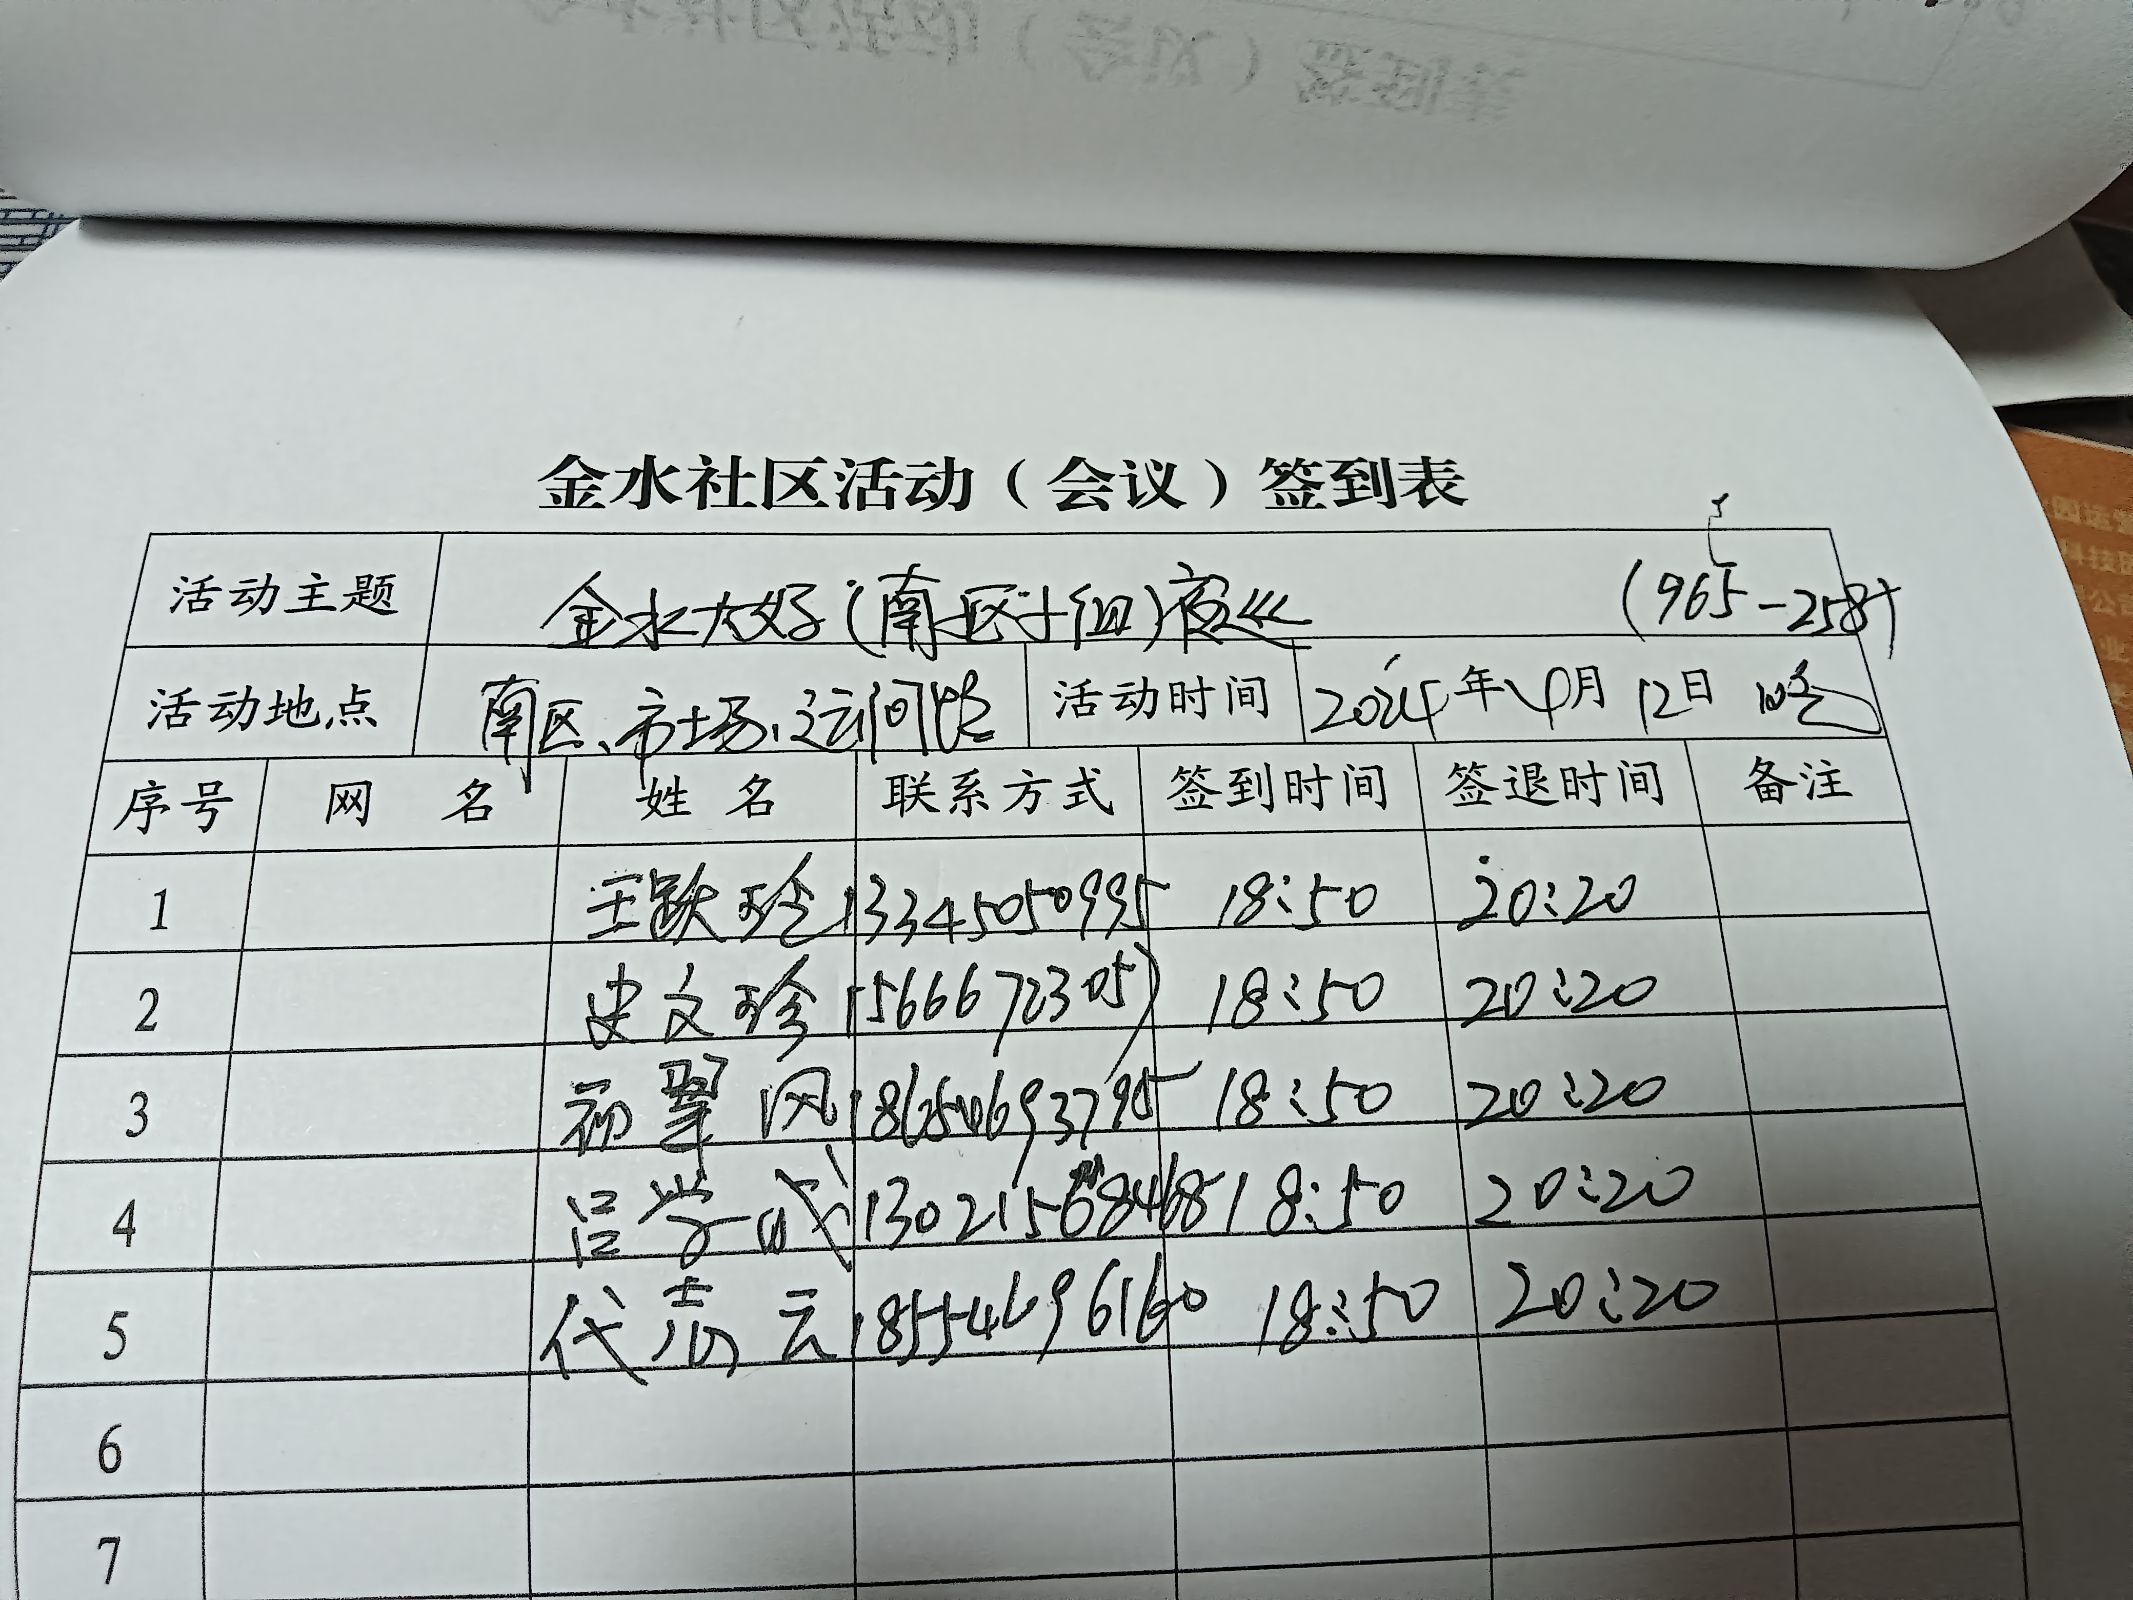 金水社区活动（会议）签到表
活动主题 金水大好(南区小组)夜巡 (965-258)
活动地点 南区、市场、运河 活动时间 2024年4月12日
序号 网名 姓名 联系方式 签到时间 签退时间 备注
1 王跃珍 13345050995 18:50 20:20
2 史文珍 15666723057 18:50 20:20
3 初翠风 18:50 20:20
4 吕学成 18:50 20:20
5 代秀云 18554696160 18:50 20:20
6
7